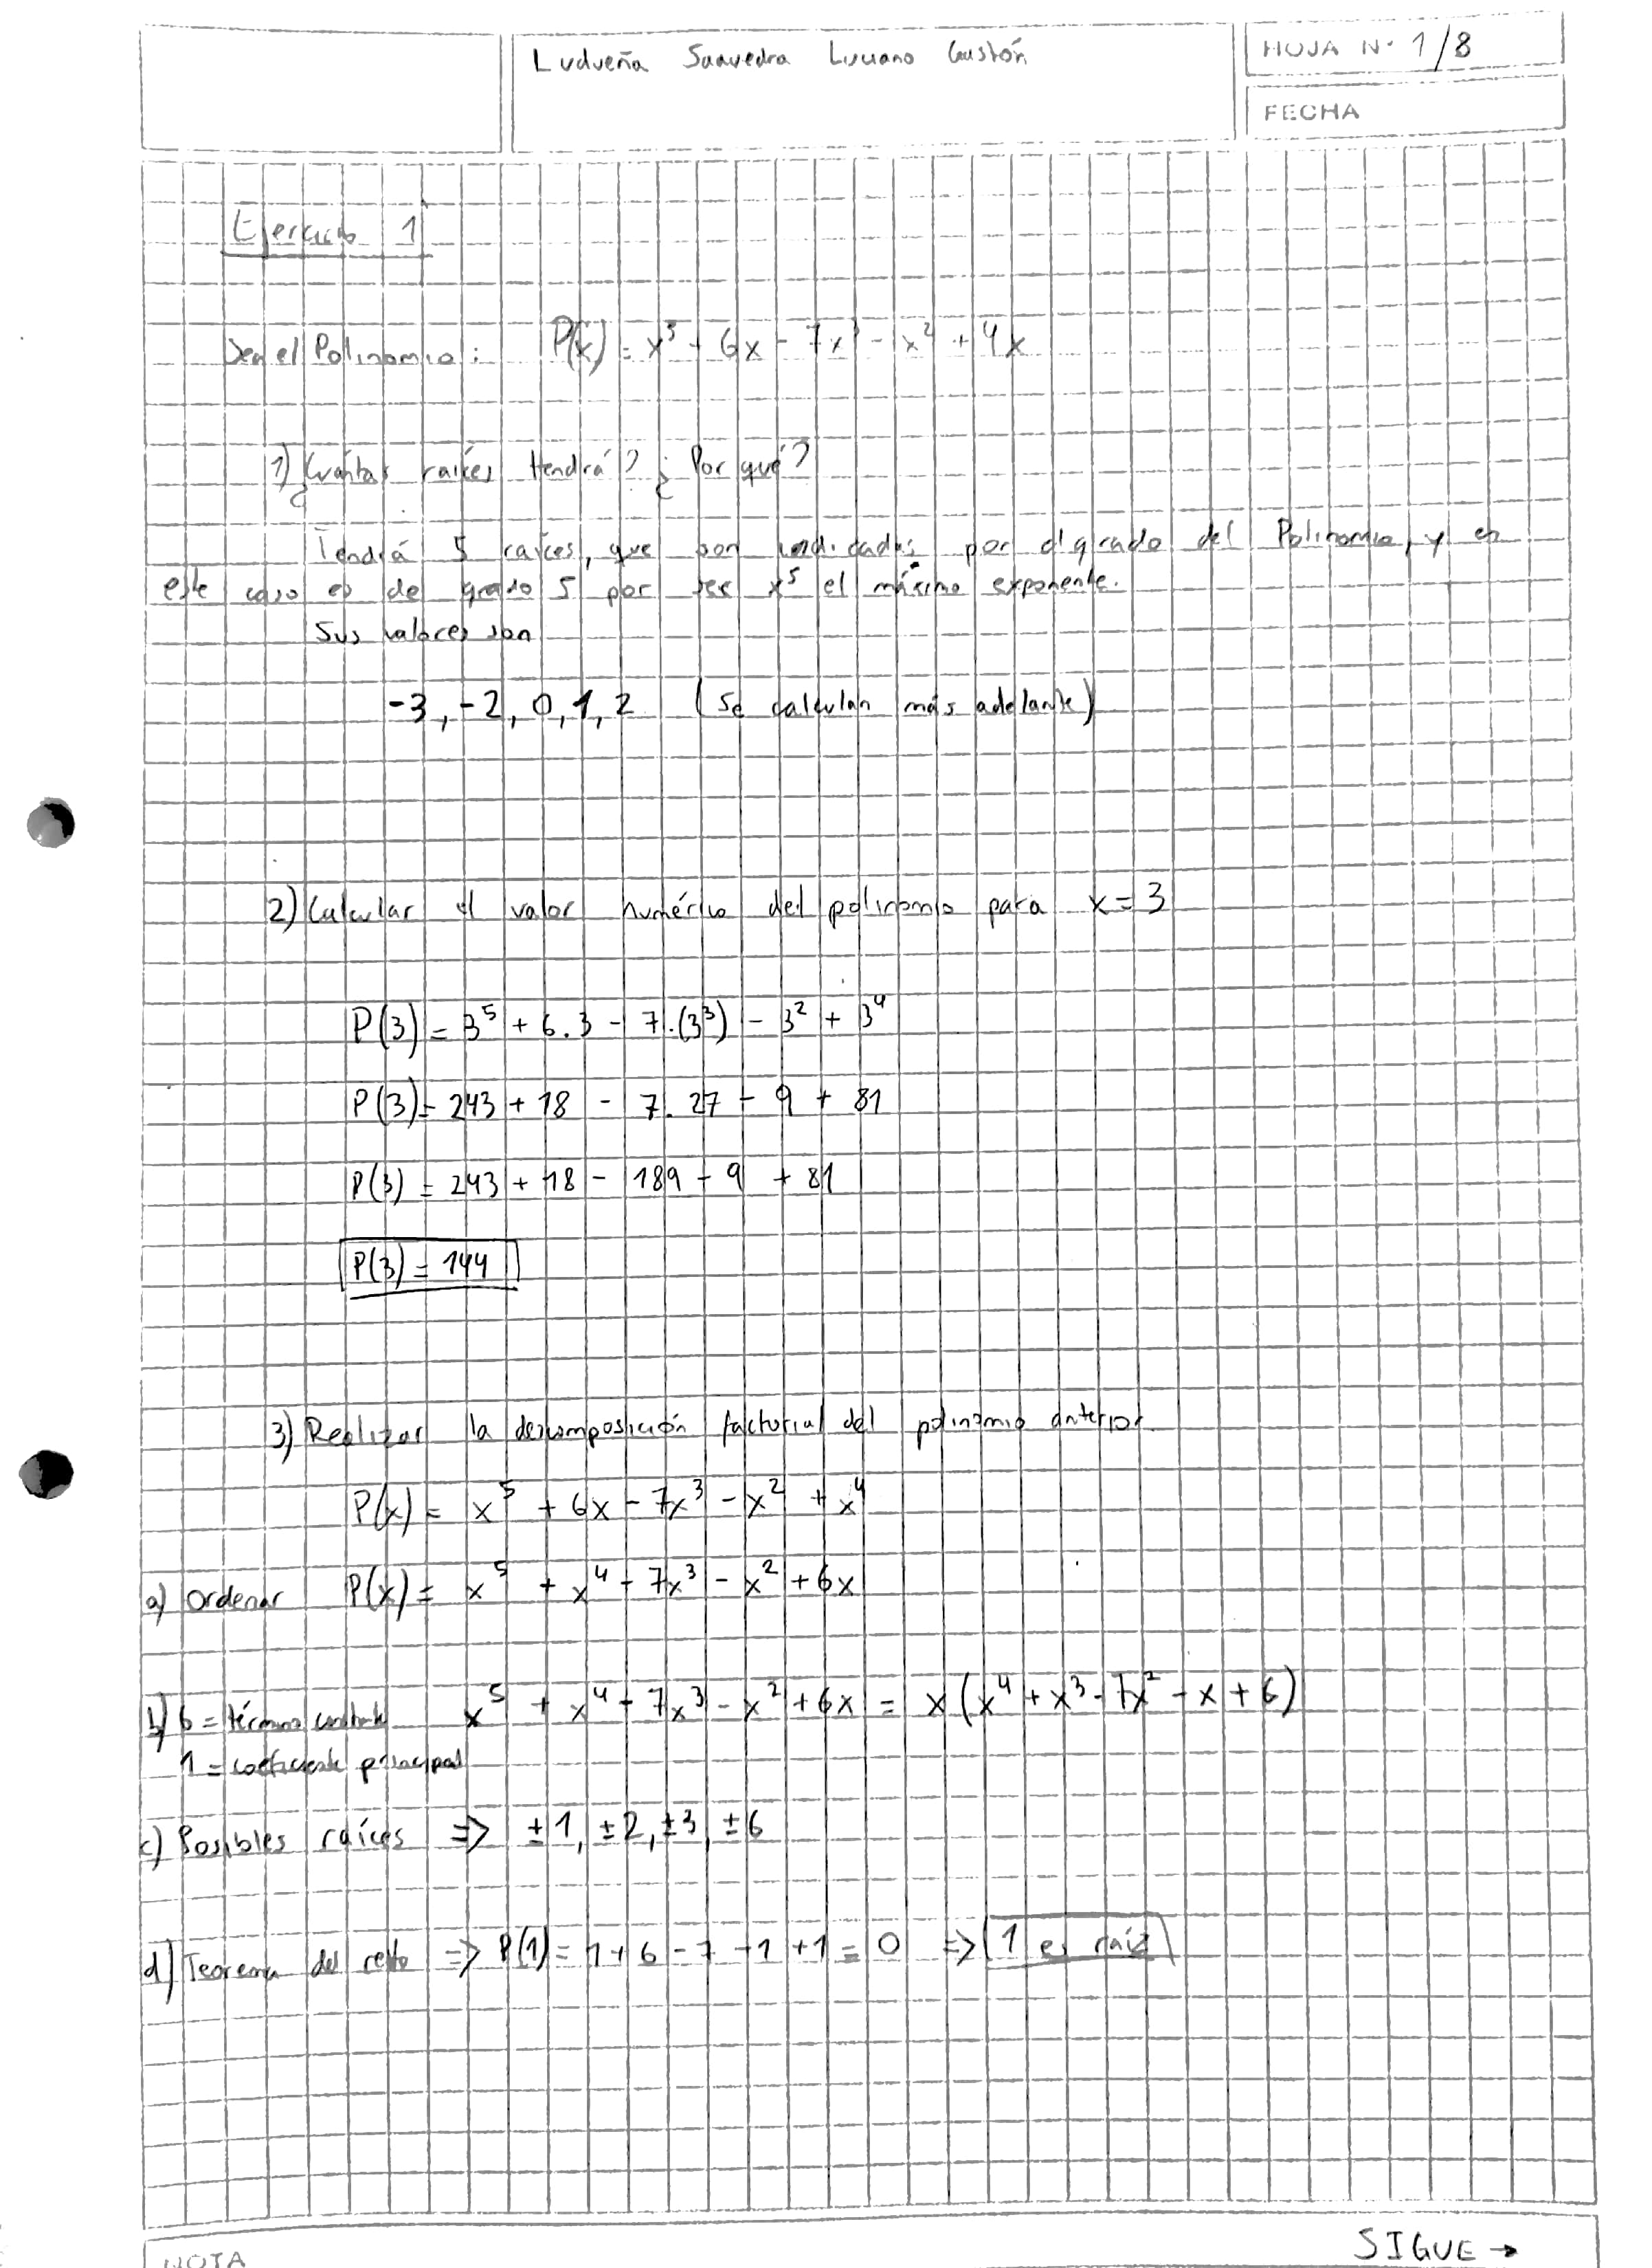 Ludueña Saavedra Luciano Gastón
HOJA N° 1/8
FECHA
Ejercicio 1
Sea el Polinomio: P(x) = x⁵ + 6x - 7x³ - x² + 4x
1) ¿Cuántas raíces tendrá? ¿Por qué?
Tendrá 5 raíces, que son indicadas por el grado del Polinomio, y en
este caso es de grado 5 por ser x⁵ el máximo exponente.
Sus valores son
-3, -2, 0, 1, 2 (Se calculan más adelante)
2) Calcular el valor numérico del polinomio para x = 3
P(3) = 3⁵ + 6.3 - 7.(3³) - 3² + 3⁴
P(3) = 243 + 18 - 7.27 - 9 + 81
P(3) = 243 + 18 - 189 - 9 + 81
P(3) = 144
3) Realizar la descomposición factorial del polinomio anterior
P(x) = x⁵ + 6x - 7x³ - x² + x⁴
a) Ordenar P(x) = x⁵ + x⁴ - 7x³ - x² + 6x
b) 6 = término constante x⁵ + x⁴ - 7x³ - x² + 6x = x(x⁴ + x³ - 7x² - x + 6)
1 = coeficiente principal
c) Posibles raíces => ±1, ±2, ±3, ±6
d) Teorema del resto => P(1) = 1 + 6 - 7 - 1 + 1 = 0 => 1 es raíz
SIGUE →
NOTA